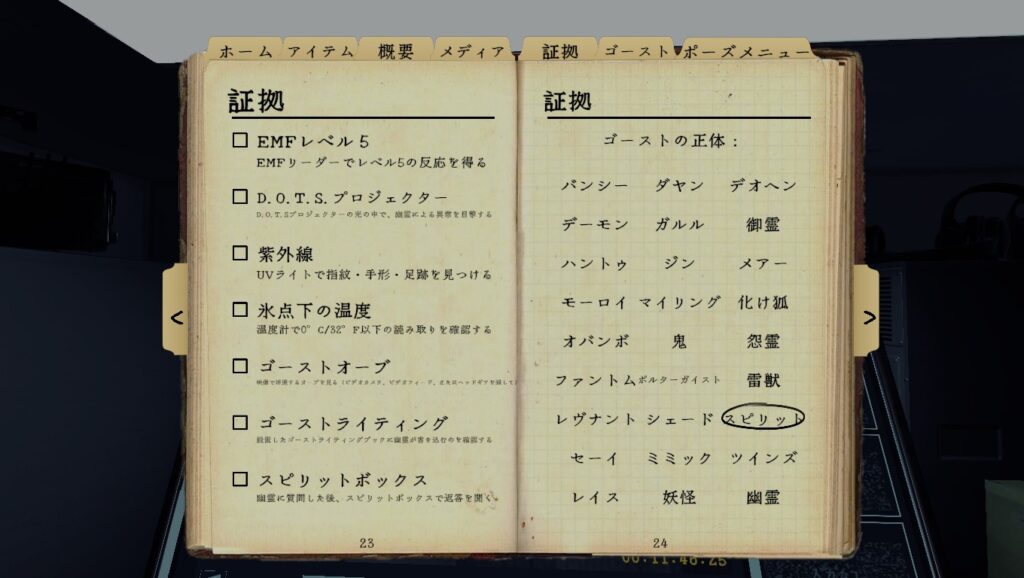 ホーム アイテム 概要 メディア 証拠 ゴースト ポーズメニュー
証拠
EMFレベル5
EMFリーダーでレベル5の反応を得る
D.O.T.S.プロジェクター
D.O.T.Sプロジェクターの光の中で、幽霊による異常を目撃する
紫外線
UVライトで指紋・手形・足跡を見つける
氷点下の温度
温度計で0°C/32°F以下の読み取りを確認する
ゴーストオーブ
ゴーストライティング
設置したゴーストライティングブックに幽霊が書き込むのを確認する
スピリットボックス
幽霊に質問した後、スピリットボックスで返答を聞く。
23
証拠
ゴーストの正体:
バンシー ダヤン デオヘン
デーモン ガルル 御霊
ハントゥ ジン メアー
モーロイ マイリング 化け狐
オバンボ 鬼 怨霊
ファントム ポルターガイスト 雷獣
レヴナント シェード スピリット
セーイ ミミック ツインズ
レイス 妖怪 幽霊
24
<
>
00:11:46:25